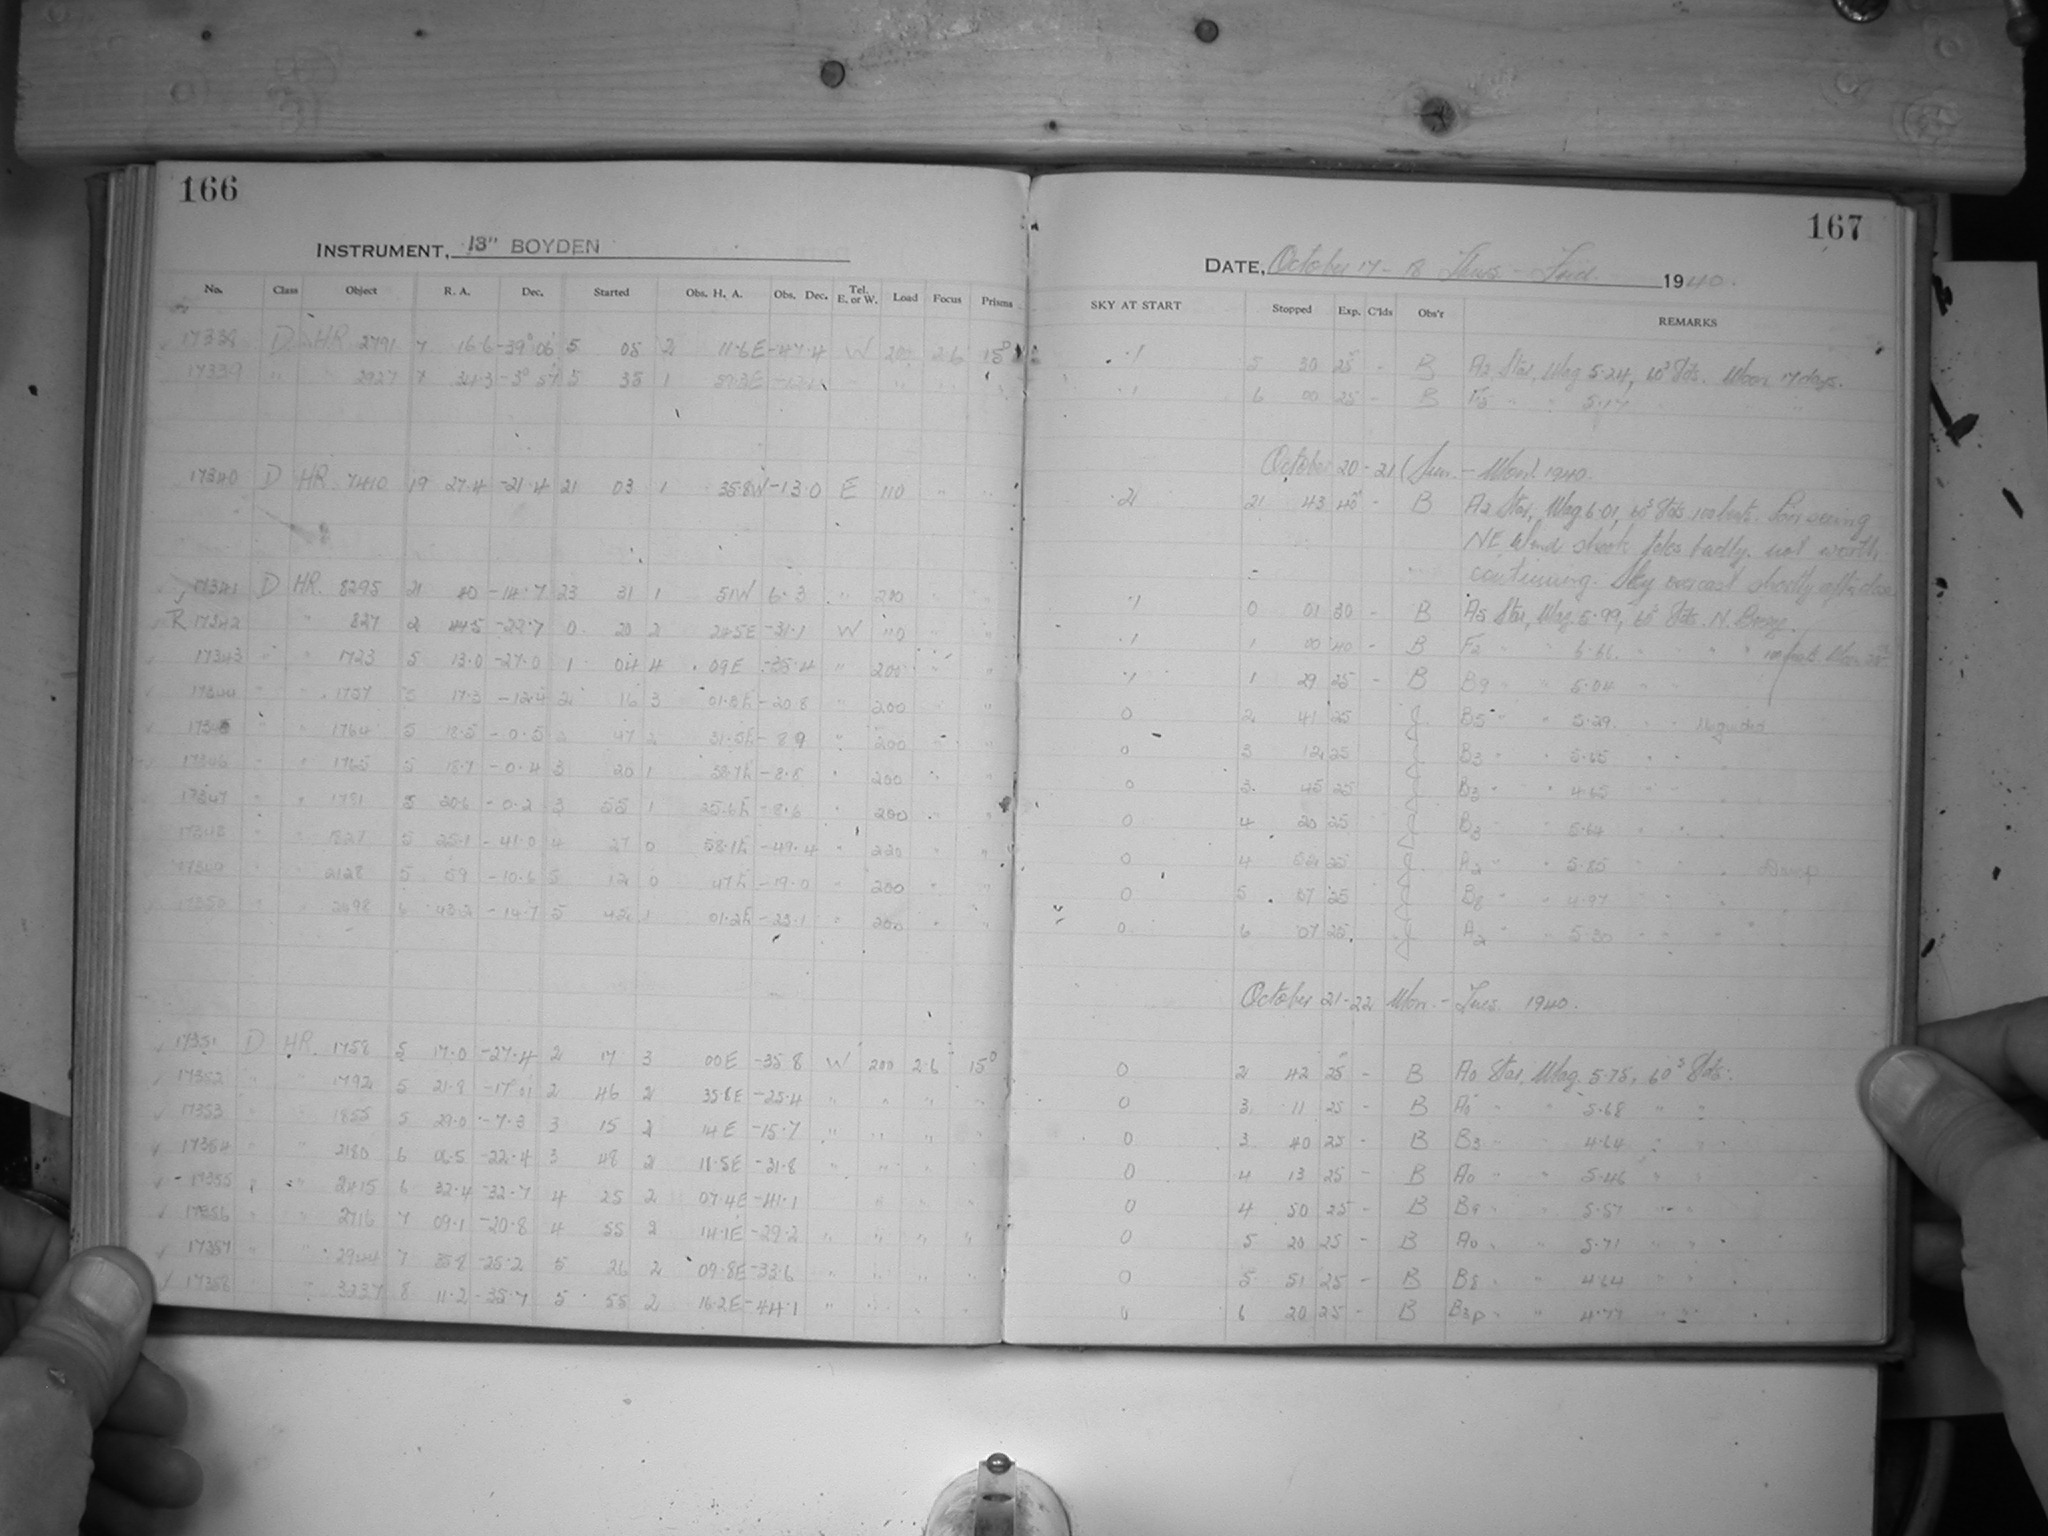 166
INSTRUMENT, 13" BOYDEN
No. Class Object R. A. Dec. Started Obs. H. A. Obs. Dec. Tel. E. or W. Load Focus Prisms
17338 D HR 2791 7 16.6 -39° 06 5 05 2 11.6E -47.4 W 200 2.6 15°
17339 " " 2927 7 34.3 5 35 1
17340 D HR 7410 19 27.4 -21.4 21 03 1 35.8W -13.0 E 110 " "
17341 D HR. 8295 21 40 -14.7 23 31 1 51W 6.3 " 200
R 17342 " 827 2 44.5 -22.7 0 20 2 24.5E -31.1 W 110 "
17343 " " 1723 5 13.0 -27.0 1 04 4 09E -35.4 " 200 " "
17344 " " 1757 5 17.3 -12.4 2 16 3 01.0E -20.8 " 200 "
1734 " " 1764 5 18.5 -0.5 47 2 31.5E -8.9 " 200 "
17346 " " 1765 5 18.7 -0.4 3 20 1 58.7E -8.8 " 200
17347 " " 1781 5 20.6 -0.2 3 55 1 25.6E -8.6 " 200 "
17348 " " 1827 5 25.1 -41.0 4 27 0 58.1E -49.4 " "
17349 " " 2128 5 59 -10.6 5 12 0 47E -19.0 " 200 " "
17350 " " 2498 6 43.2 -14.7 5 42 1 01.2E -23.1 " 200 " "
17351 D HR. 1758 5 17.0 -27.4 2 17 3 00E -35.8 W 200 2.6 15°
17352 " " 1792 5 21.8 2 46 2 35.8E -25.4 " " " "
17353 " " 1855 5 29.0 -7.3 3 15 2 14E -15.7 " " " "
17354 " " 2180 6 06.5 -22.4 3 48 2 18.5E -31.8 " " " "
17355 " " 2415 6 32.4 -32.7 4 25 2 07.4E -41.1 " " "
17356 " " 2716 7 09.1 -20.8 4 55 2 14.1E -29.2 " " " "
17357 " " 2944 7 35.8 -25.2 5 26 2 09.8E -33.6 " " " "
17358 " 3237 8 11.2 -35.7 5 55 2 16.2E -44.1 " " " "
167
DATE, October 17 - 18 Thurs - Frid. 1940.
SKY AT START Stopped Exp. C'lds Obs'r REMARKS
.1 5 30 25 - B A2 Star, Mag 5.24, 60s Stds. Moon 17 days.
.1 6 00 25 - B F5 " " 5.17
October 20 - 21 (Sun. - Mon) 1940.
.2 21 43 40 - B A2 Star, Mag 6.01, 60s Stds. Poor seeing
NE Wind shook teles badly. not worth
continuing. Sky overcast shortly after close
.1 0 01 30 - B A5 Star, Mag. 5.99, 60s Stds. N. Breeze.
.1 1 00 40 - B F2 " " 6.66. " " " Moon
.1 1 29 25 - B B9 " " 5.04 " "
0 2 41 25 J. B5 " " 5.29. " "
0 3 12 25 J B3 " " 5.65 " "
0 3. 45 25 J B3 " " 4.65 " "
0 4 20 25 J B3 " " 5.64 " "
0 4 25 J A2 " " 5.85 " "
0 5 37 25 J B8 " " 4.97 " "
0 6 07 25 J A2 " " 5.30 " "
October 21 - 22 Mon. - Tues. 1940.
0 2 42 25 - B A0 Star, Mag. 5.75, 60s Stds.
0 3 11 25 - B A0 " " 5.68 " "
0 3 40 25 - B B3 " " 4.64 " "
0 4 13 25 - B A0 " " 5.46 " "
0 4 50 25 - B B9 " " 5.57 " "
0 5 20 25 - B A0 " " 5.71 " "
0 5 51 25 - B B8 " " 4.64 " "
0 6 20 25 - B B3p " " 4.77 " "